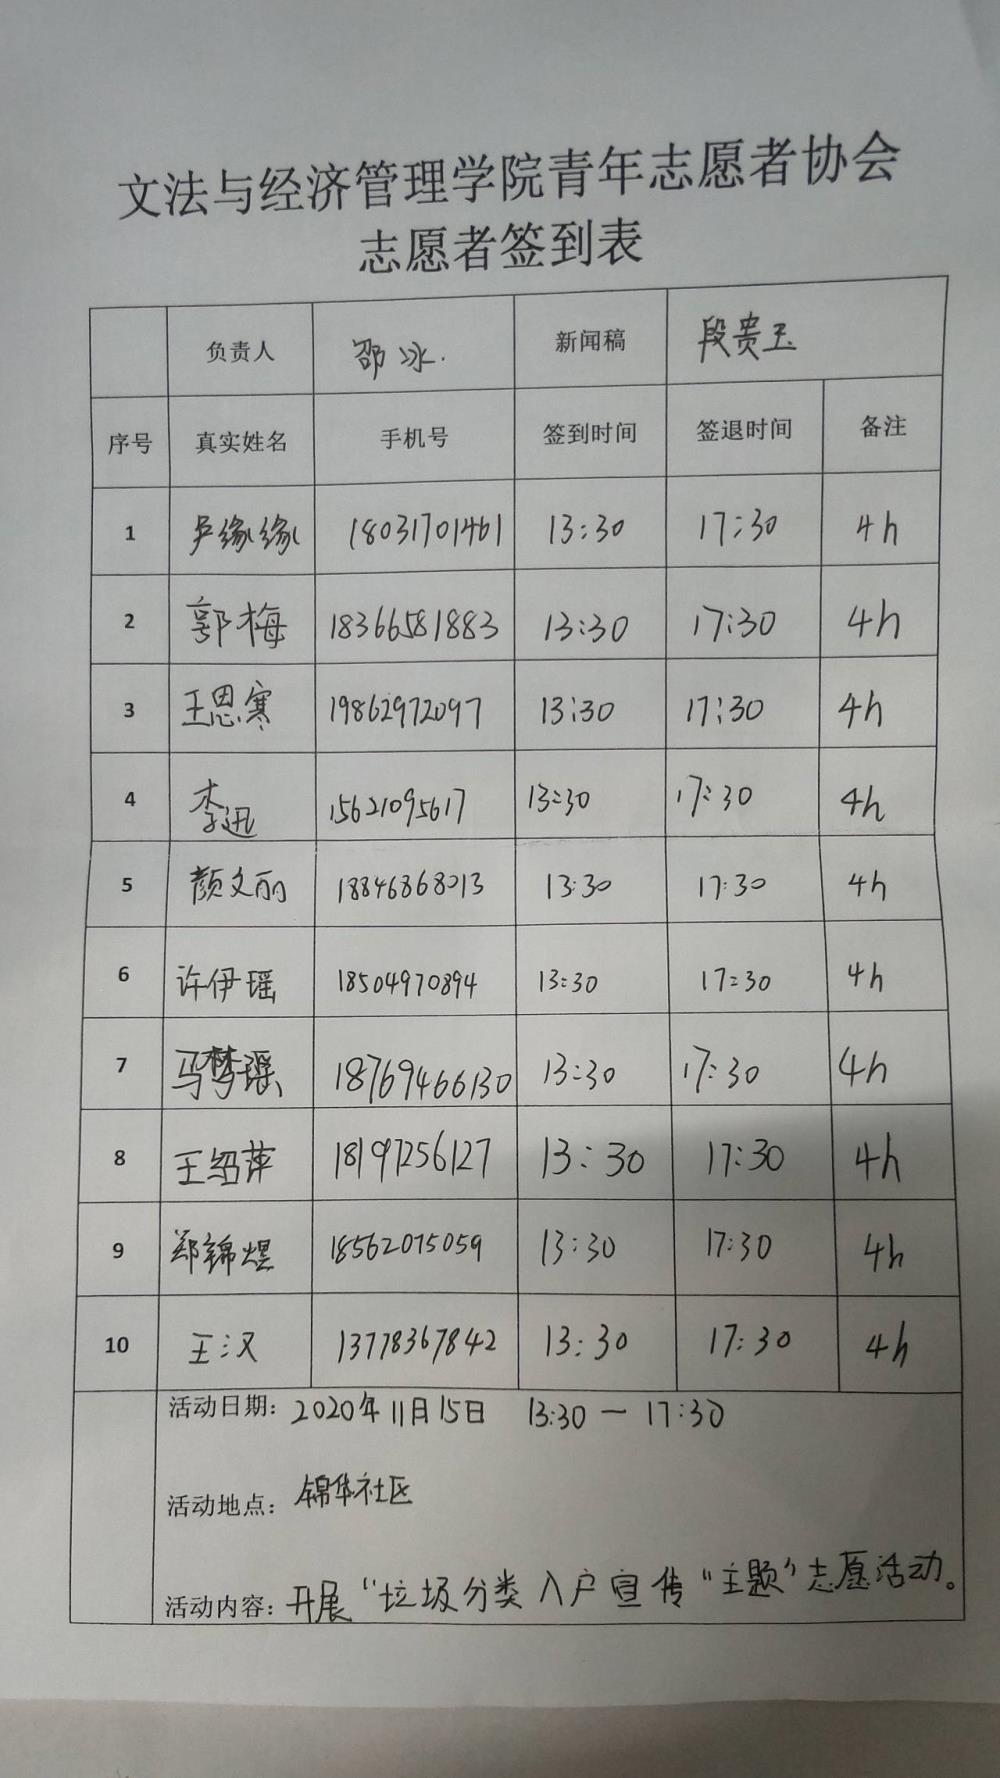 文法与经济管理学院青年志愿者协会
志愿者签到表
负责人 邵冰. 新闻稿 段贵玉
序号 真实姓名 手机号 签到时间 签退时间 备注
1 吴缘缘 18031701461 13:30 17:30 4h
2 郭梅 18366581883 13:30 17:30 4h
3 王恩寒 19862972097 13:30 17:30 4h
4 李迅 15621095617 13:30 17:30 4h
5 颜文丽 18846868013 13:30 17:30 4h
6 许伊瑶 18504970894 13:30 17:30 4h
7 马梦瑶 18769466130 13:30 17:30 4h
8 王绍萍 18197256127 13:30 17:30 4h
9 郑锦煜 18562075059 13:30 17:30 4h
10 王汉 13778367842 13:30 17:30 4h
活动日期: 2020年11月15日 13:30 — 17:30
活动地点: 锦华社区
活动内容: 开展"垃圾分类入户宣传"主题"志愿活动。